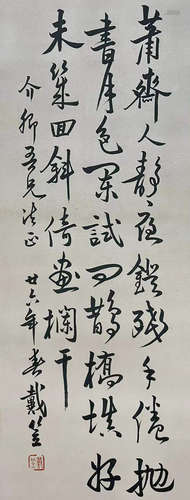 蕭齋人靜夜鐙殘手倦拋
書月色闌試問鵲橋填好
未幾回斜倚畫欄干
介卿吾兄法正
廿六年春戴笠